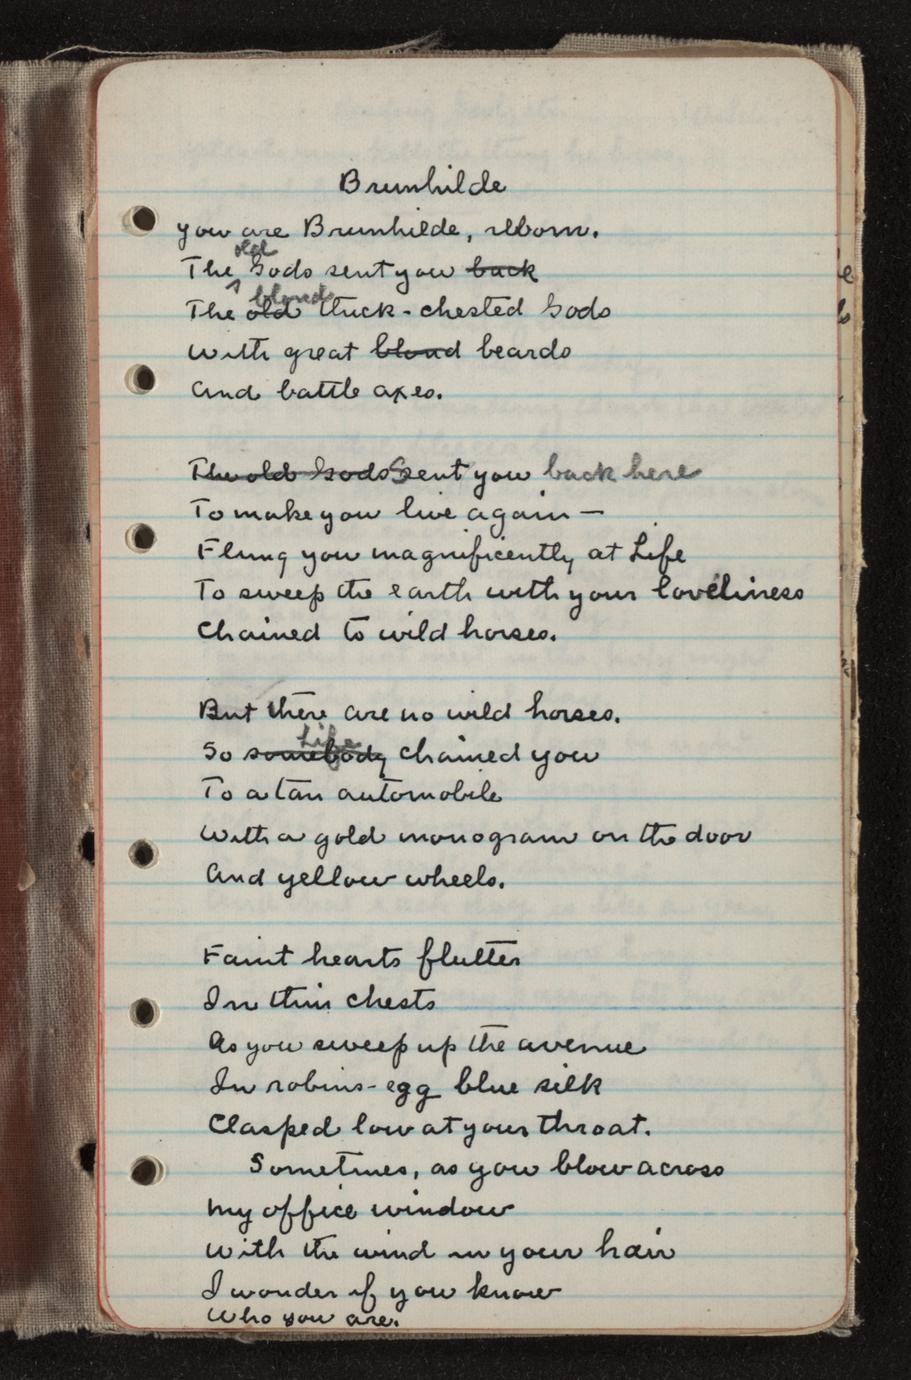 Brunhilde
you are Brunhilde, reborn.
old
The Gods sent you back
blond
The old thick-chested Gods
With great blond beards
And battle axes.
The old Gods Sent you back here
To make you live again —
Flung you magnificently at Life
To sweep the earth with your loveliness
Chained to wild horses.
But there are no wild horses.
Life
So somebody chained you
To a tan automobile
With a gold monogram on the door
And yellow wheels.
Faint hearts flutter
In thin chests
As you sweep up the avenue
In robins-egg blue silk
Clasped low at your throat.
Sometimes, as you blow across
my office window
With the wind in your hair
I wonder if you know
Who you are.